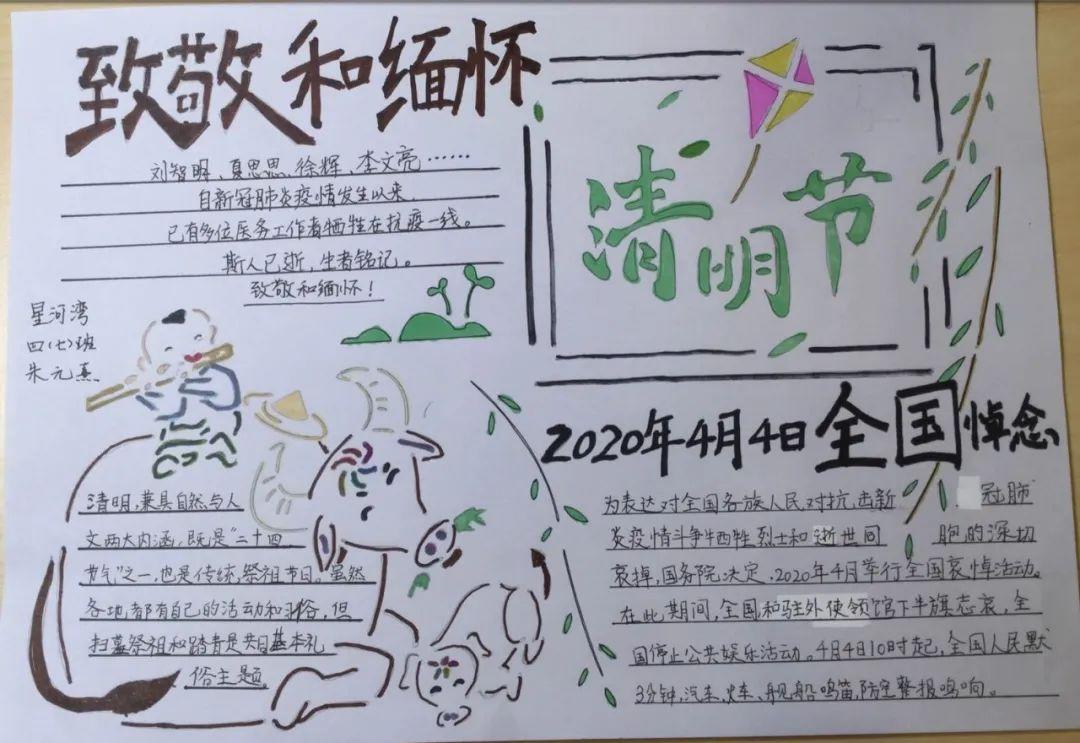 致敬和缅怀
刘智明、夏思思、徐辉、李文亮……
自新冠肺炎疫情发生以来
已有多位医务工作者牺牲在抗疫一线。
斯人已逝，生者铭记。
致敬和缅怀！
星河湾
四（七）班
朱元熹
清明节
清明，兼具自然与人
文两大内涵，既是“二十四
节气”之一，也是传统祭祖节日。虽然
各地都有自己的活动和习俗，但
扫墓祭祖和踏青是共日基本礼
俗主题
2020年4月4日全国悼念
为表达对全国各族人民对抗击新冠肺
炎疫情斗争牺牲烈士和逝世同胞的深切
哀掉，国务院决定，2020年4月举行全国哀悼活动。
在此期间，全国和驻外使领馆下半旗志哀，全
国停止公共娱乐活动。4月4日10时起，全国人民默
3分钟，汽车、火车、舰船鸣笛，防空警报鸣响。